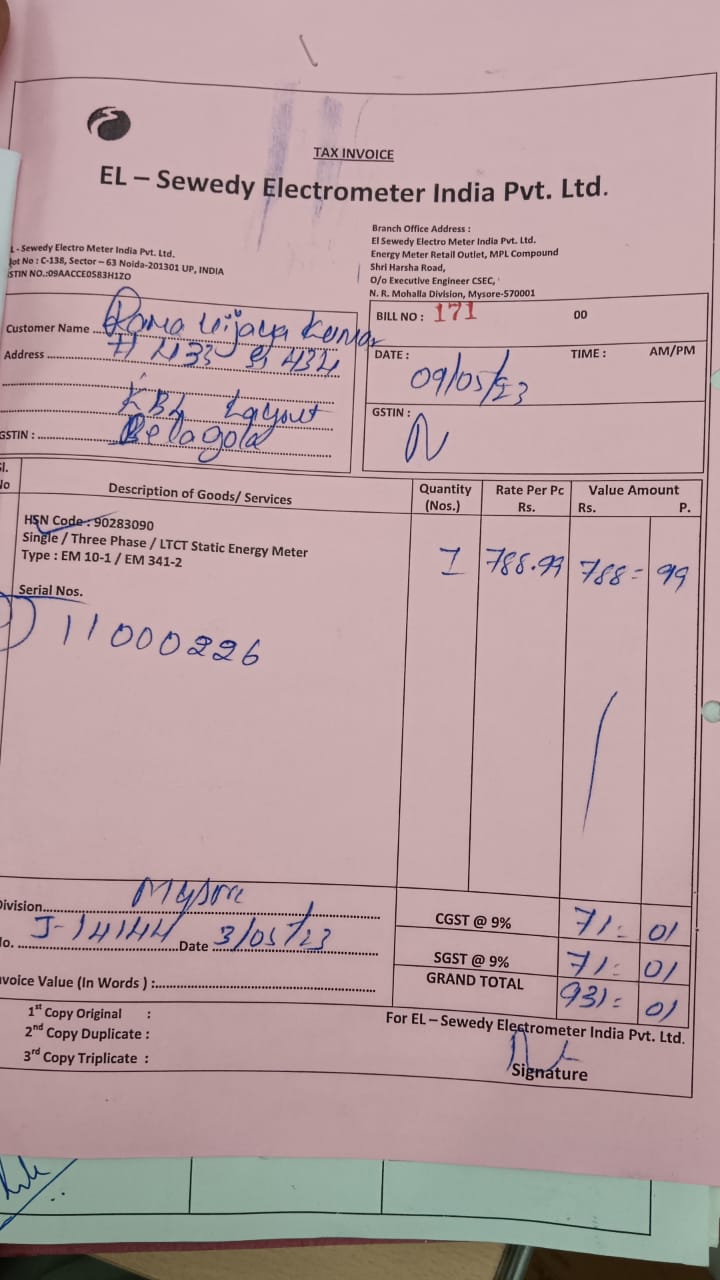 TAX INVOICE
EL – Sewedy Electrometer India Pvt. Ltd.
L - Sewedy Electro Meter India Pvt. Ltd.
lot No : C-138, Sector – 63 Noida-201301 UP, INDIA
STIN NO.:09AACCE0583H1ZO
Branch Office Address :
El Sewedy Electro Meter India Pvt. Ltd.
Energy Meter Retail Outlet, MPL Compound
Shri Harsha Road,
O/o Executive Engineer CSEC,
N. R. Mohalla Division, Mysore-570001
Customer Name Rama Vijaya Kumar
Address # 433 & 434
KBL Layout
GSTIN : Belagola
BILL NO : 171 00
DATE : 09/05/23 TIME : AM/PM
GSTIN :
Sl. No Description of Goods/ Services Quantity (Nos.) Rate Per Pc Rs. Value Amount Rs. P.
HSN Code : 90283090
Single / Three Phase / LTCT Static Energy Meter
Type : EM 10-1 / EM 341-2
1 788.99 788= 99
Serial Nos.
11000226
Division Mysore
No. J-14144 Date 3/05/23
CGST @ 9% 71= 01
SGST @ 9% 71= 01
GRAND TOTAL 931= 01
nvoice Value (In Words ) :
1st Copy Original :
2nd Copy Duplicate :
3rd Copy Triplicate :
For EL – Sewedy Electrometer India Pvt. Ltd.
Signature